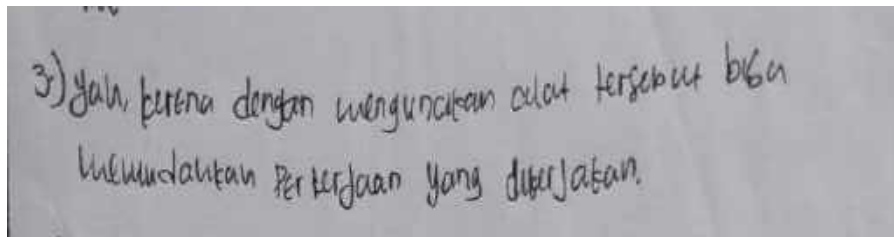 3.) Yah, kerena dengan mengunakan alat tersebut bisa
memudahkan Perkerjaan yang dikerjakan.